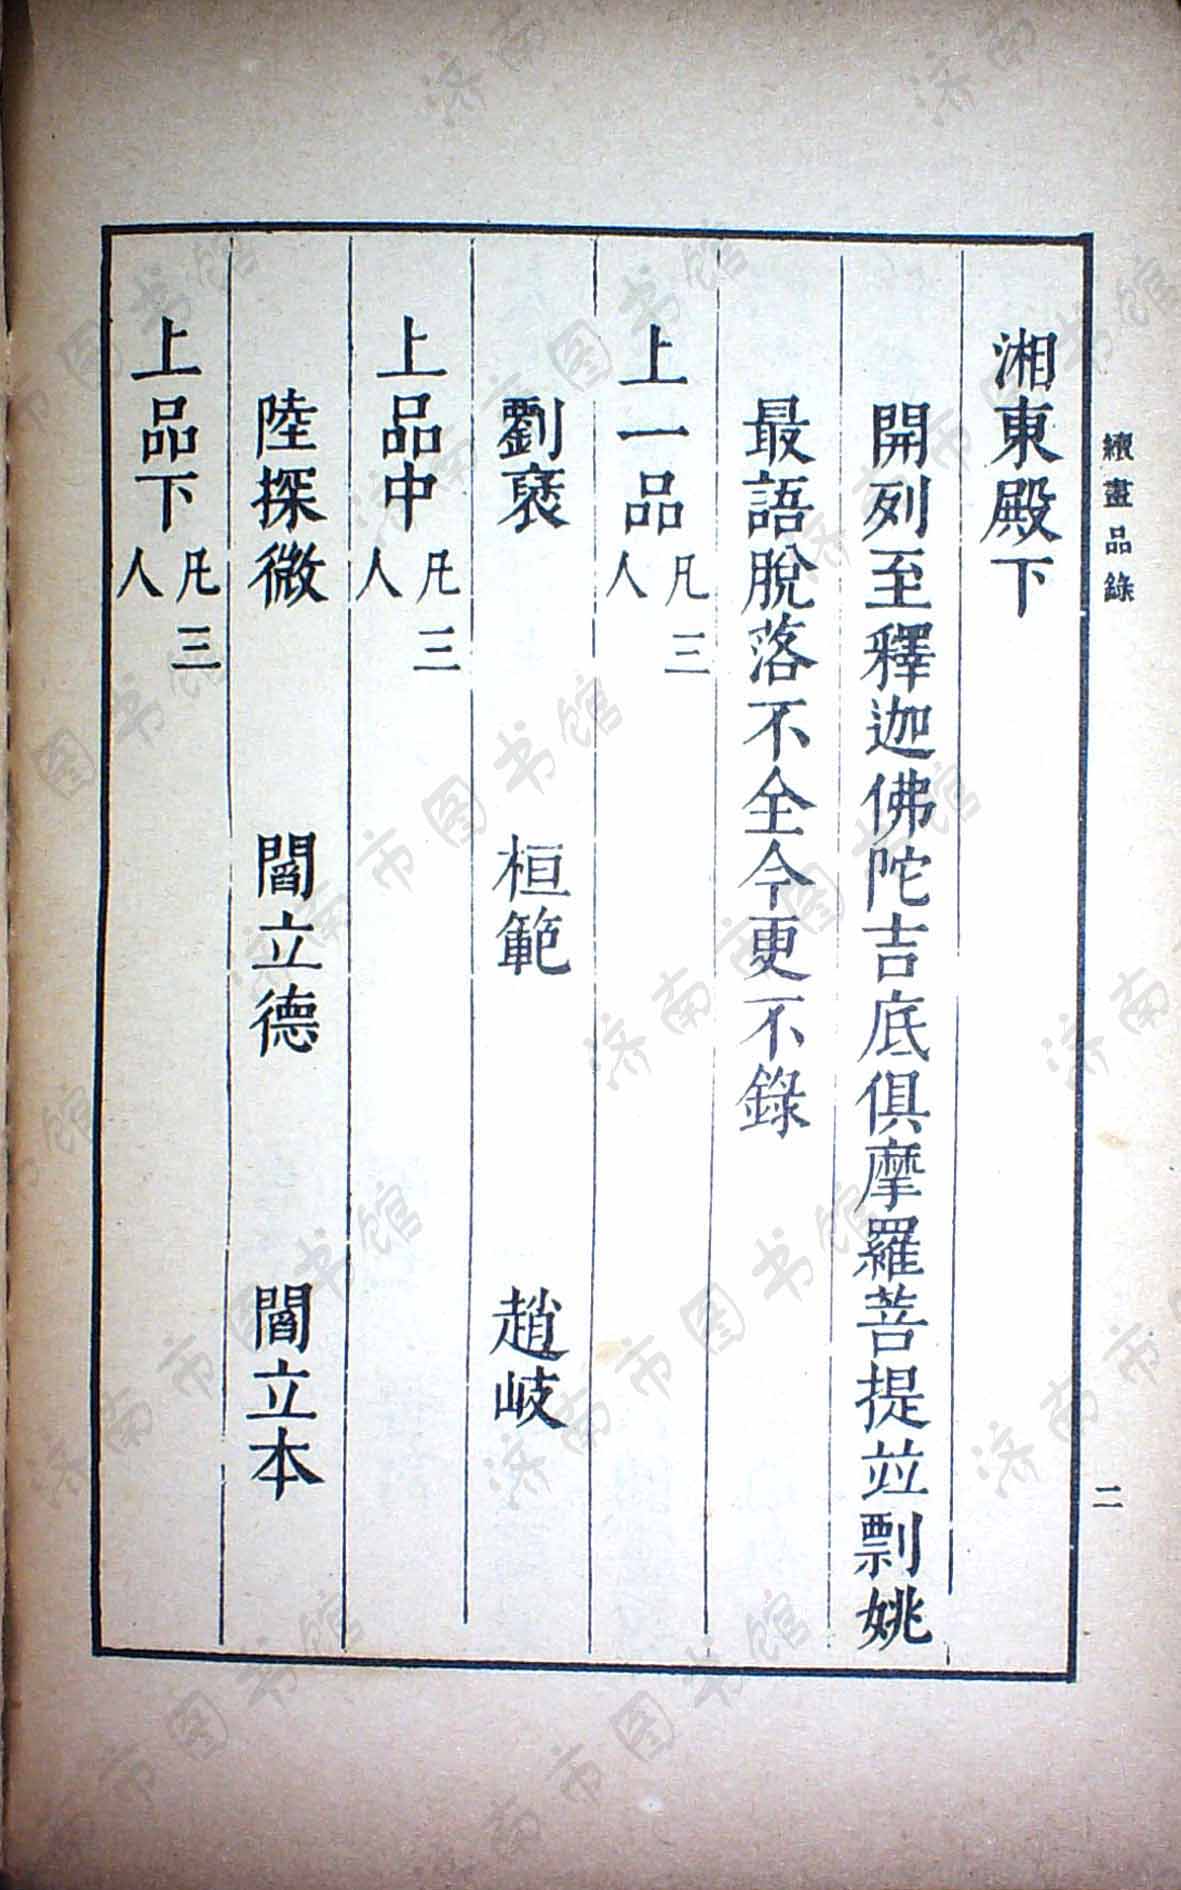 續畫品錄
二
湘東殿下
開列至釋迦佛陀吉底俱摩羅菩提並剽姚
最語脫落不全今更不錄
上一品 凡三人
劉褎 桓範 趙岐
上品中 凡三人
陸探微 閻立德 閻立本
上品下 凡三人
济南市图书馆